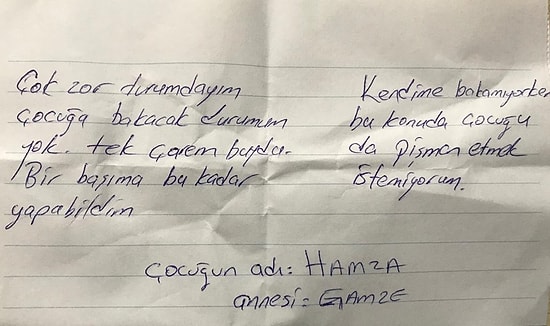 Çok zor durumdayım
çocuğa bakacak durumum
yok. tek çarem buydu.
Bir başıma bu kadar
yapabildim
Kendime bakamıyorken
bu konuda çocuğu
da pişman etmek
istemiyorum.
çocuğun adı: HAMZA
annesi = GAMZE